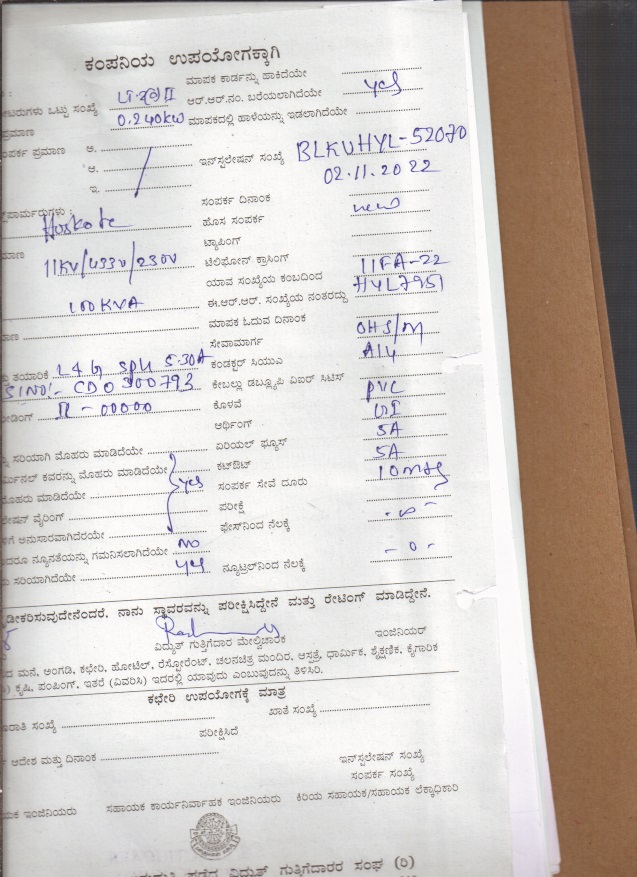 ಕಂಪನಿಯ ಉಪಯೋಗಕ್ಕಾಗಿ
ಮಾಪಕ ಕಾರ್ಡನ್ನು ಹಾಕಿದೆಯೇ
ಒಟ್ಟು ಸಂಖ್ಯೆ ಆರ್.ಆರ್.ನಂ. ಬರೆಯಲಾಗಿದೆಯೇ yes
ಪ್ರಮಾಣ 0.240KW ಮಾಪಕದಲ್ಲಿ ಹಾಳೆಯನ್ನು ಇಡಲಾಗಿದೆಯೇ
ಪ್ರಮಾಣ ಅ.
ಆ. ಇನ್‌ಸ್ಟಲೇಷನ್ ಸಂಖ್ಯೆ BLKUHYL-52070
ಇ. 02.11.2022
ಸಂಪರ್ಕ ದಿನಾಂಕ
Hoskote ಹೊಸ ಸಂಪರ್ಕ new
ಟ್ಯಾಪಿಂಗ್
11KV/433V/230V ಟೆಲಿಫೋನ್ ಕ್ರಾಸಿಂಗ್
ಯಾವ ಸಂಖ್ಯೆಯ ಕಂಬದಿಂದ 11FA-22
100KVA ಈ.ಆರ್.ಆರ್. ಸಂಖ್ಯೆಯ ನಂತರದ್ದು HYL7951
ಮಾಪಕ ಓದುವ ದಿನಾಂಕ
ಸೇವಾಮಾರ್ಗ OHS/M
ತಯಾರಿಕೆ L&G 5-30A ಕಂಡಕ್ಟರ್ ಸಿಯುಎ
CD0300793 ಕೇಬಲ್ಲು ಡಬ್ಲ್ಯೂಪಿ ವಿಐಆರ್ ಸಿಟಿಸ್ PVC
00000 ಕೊಳವೆ
ಆರ್ಥಿಂಗ್ 5A
ಸರಿಯಾಗಿ ಮೊಹರು ಮಾಡಿದೆಯೇ ಏರಿಯಲ್ ಫ್ಯೂಸ್ 5A
ಕವರನ್ನು ಮೊಹರು ಮಾಡಿದೆಯೇ ಕಟ್‌ಔಟ್
ಮೊಹರು ಮಾಡಿದೆಯೇ yes ಸಂಪರ್ಕ ಸೇವೆ ದೂರು
ವೈರಿಂಗ್ ಪರೀಕ್ಷೆ
ಅನುಸಾರವಾಗಿದೆರೆಯೇ ಫೇಸ್‌ನಿಂದ ನೆಲಕ್ಕೆ
ನ್ಯೂನತೆಯನ್ನು ಗಮನಿಸಲಾಗಿದೆಯೇ NO
ಸರಿಯಾಗಿದೆಯೇ yes ನ್ಯೂಟ್ರಲ್‌ನಿಂದ ನೆಲಕ್ಕೆ - 0 -
ನಾನು ಸ್ಥಾವರವನ್ನು ಪರೀಕ್ಷಿಸಿದ್ದೇನೆ ಮತ್ತು ರೇಟಿಂಗ್ ಮಾಡಿದ್ದೇನೆ.
ವಿದ್ಯುತ್ ಗುತ್ತಿಗೆದಾರ ಮೇಲ್ವಿಚಾರಕ ಇಂಜಿನಿಯರ್
ಮನೆ, ಅಂಗಡಿ, ಕಛೇರಿ, ಹೋಟೆಲ್, ರೆಸ್ಟೋರೆಂಟ್, ಚಲನಚಿತ್ರ ಮಂದಿರ, ಆಸ್ಪತ್ರೆ, ಧಾರ್ಮಿಕ, ಶೈಕ್ಷಣಿಕ, ಕೈಗಾರಿಕ
ಕೃಷಿ, ಪಂಪಿಂಗ್, ಇತರೆ (ವಿವರಿಸಿ) ಇದರಲ್ಲಿ ಯಾವುದು ಎಂಬುವುದನ್ನು ತಿಳಿಸಿರಿ.
ಕಛೇರಿ ಉಪಯೋಗಕ್ಕೆ ಮಾತ್ರ
ಸಂಖ್ಯೆ ಖಾತೆ ಸಂಖ್ಯೆ
ಪರೀಕ್ಷಿಸಿದೆ
ಆದೇಶ ಮತ್ತು ದಿನಾಂಕ
ಇನ್‌ಸ್ಟಲೇಷನ್ ಸಂಖ್ಯೆ
ಸಂಪರ್ಕ ಸಂಖ್ಯೆ
ಇಂಜಿನಿಯರು ಸಹಾಯಕ ಕಾರ್ಯನಿರ್ವಾಹಕ ಇಂಜಿನಿಯರು ಕಿರಿಯ ಸಹಾಯಕ/ಸಹಾಯಕ ಲೆಕ್ಕಾಧಿಕಾರಿ
ವಿದ್ಯುತ್ ಗುತ್ತಿಗೆದಾರರ ಸಂಘ (ರಿ)